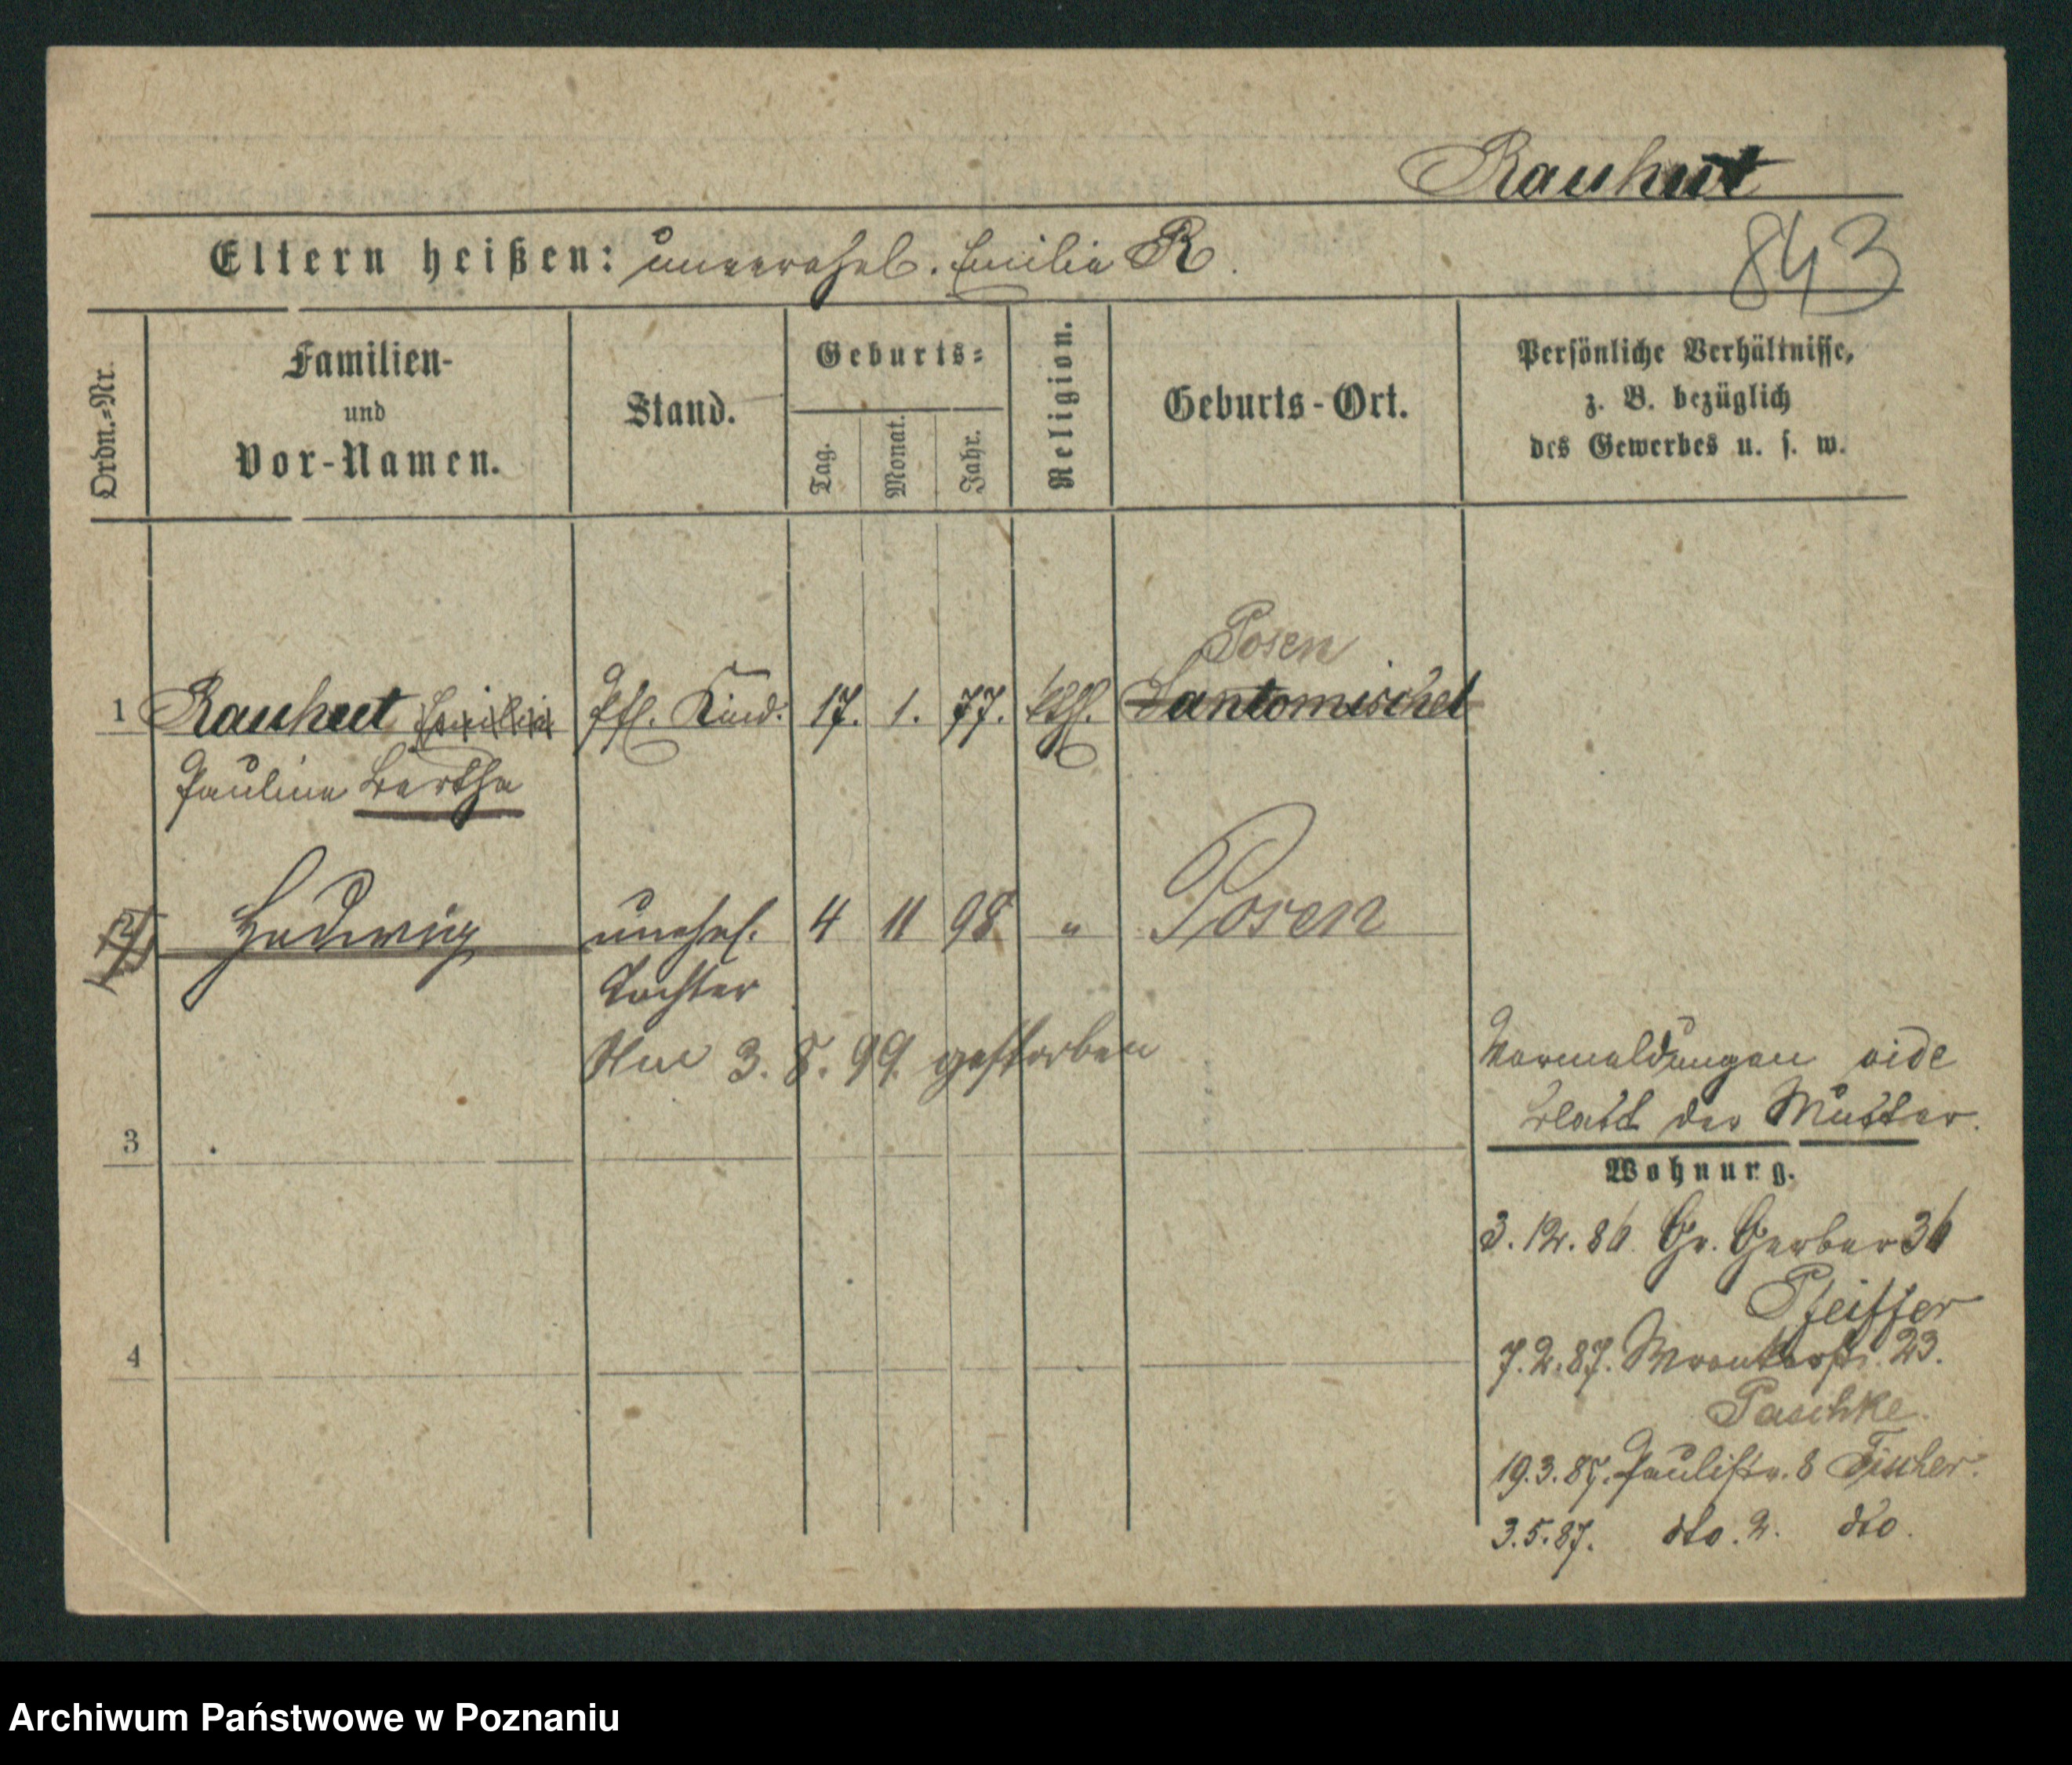 Rauhut
843
Eltern heißen: unverehel. Emilie R.
Ordn.=Nr.
Familien-
und
Vor-Namen.
Stand.
Geburts=
Tag.
Monat.
Jahr.
Religion.
Geburts-Ort.
Persönliche Verhältnisse,
z. B. bezüglich
des Gewerbes u. s. w.
Posen
1 Rauhut Emilie Pfl. Kind. 17. 1. 77. kth. Santomischel
Pauline Bertha
2 Hedwig unehel. 4 11 98 " Posen
Tochter
Am 3. 8. 99. gestorben
Vormeldungen vide
Blatt der Mutter.
3
Wohnurg.
3.12.86. Gr. Gerber 36
Pfeiffer
4
7.2.87. Wronkerstr. 23.
Paschke.
19.3.87. Paulistr. 8 Fischer.
3.5.87. dto. 2. dto.
Archiwum Państwowe w Poznaniu